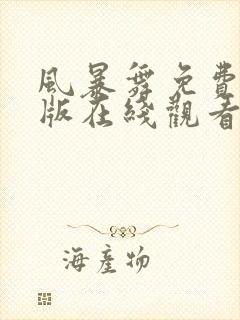 風暴舞免費
版在綫觀看
海產物